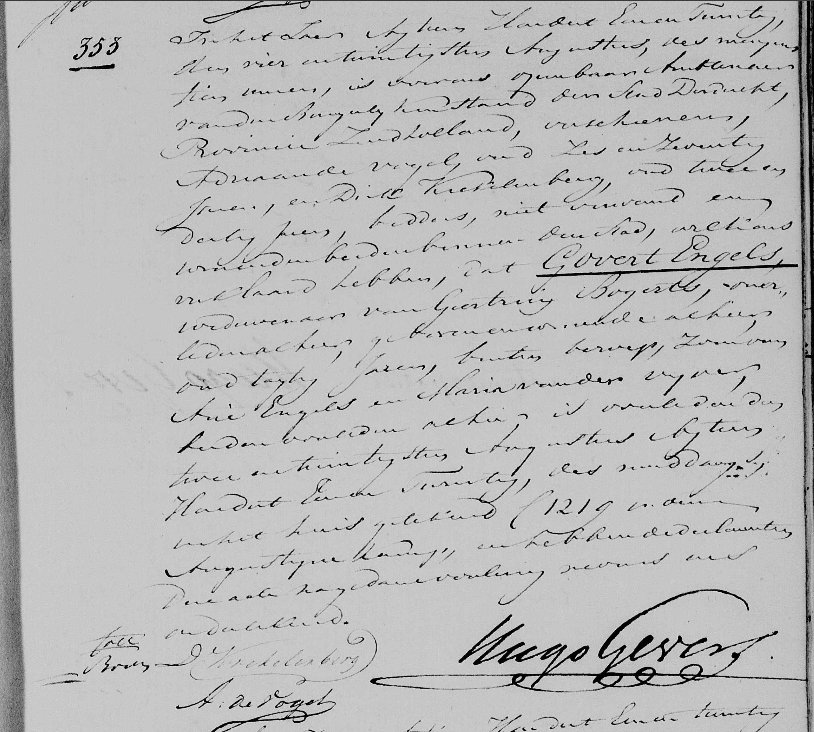 353
In het Jaar Agtien Honderd Een en Twintig,
den vier en twintigsten Augustus, des morgens
tien uuren, is voor ons openbaar Ambtenaar
van den Burgerlyken Stand der Stad Dordrecht,
Provincie Zuidholland, verschenen,
Adriaan de Vogel, oud Zes en Zeventig
Jaren, en Dirk Krekelenberg, oud twee en
dertig Jaren, bidders, niet verwand en
woonende beiden binnen deze Stad, welke ons
verklaard hebben, dat Govert Engels,
weduwenaar van Geertruij Bogerts, over-
leden alhier, geboren en woonende alhier
oud tagtig Jaren, buiten beroep, Zoon van
Arie Engels en Maria van der Vyver,
beiden overleden alhier, is overleden den
twee en twintigsten Augustus Agtien
Honderd Een en Twintig, des middags
in het huis getekend C 1219 in de
Augustyne kamp, en hebben de declaranten
deze acte na gedane voorlezing nevens ons
onderteekend.
D Krekelenberg
Hugo Gevers
A. de Vogel
Honderd Een en twintig